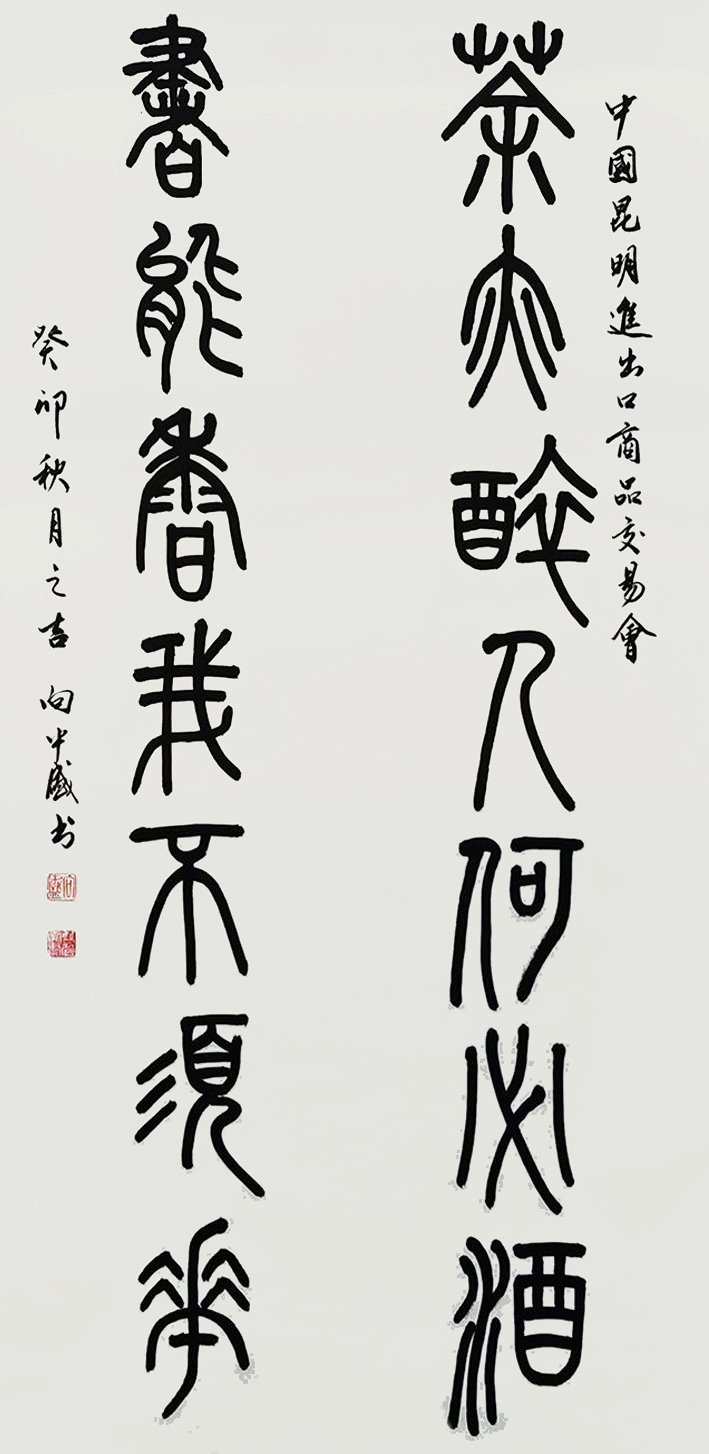 中國昆明進出口商品交易會
茶亦醉人何必酒
書能香我不須花
癸卯秋月之吉 向中盛书